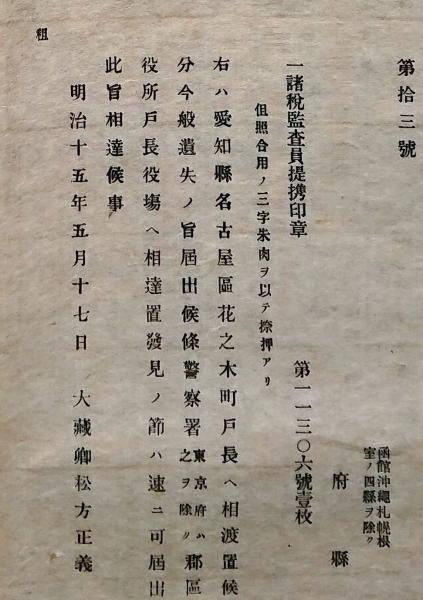 第拾三號
函館沖繩札幌根
室ノ四縣ヲ除ク
府縣
一諸稅監査員提携印章 第一一三〇六號壹枚
但照合用ノ三字朱肉ヲ以テ捺押アリ
右ハ愛知縣名古屋區花之木町戸長ヘ相渡置候
分今般遺失ノ旨屆出候條警察署東京府ハ之ヲ除ク郡區
役所戸長役塲ヘ相達置發見ノ節ハ速ニ可屆出
此旨相達候事
明治十五年五月十七日 大藏卿松方正義
租